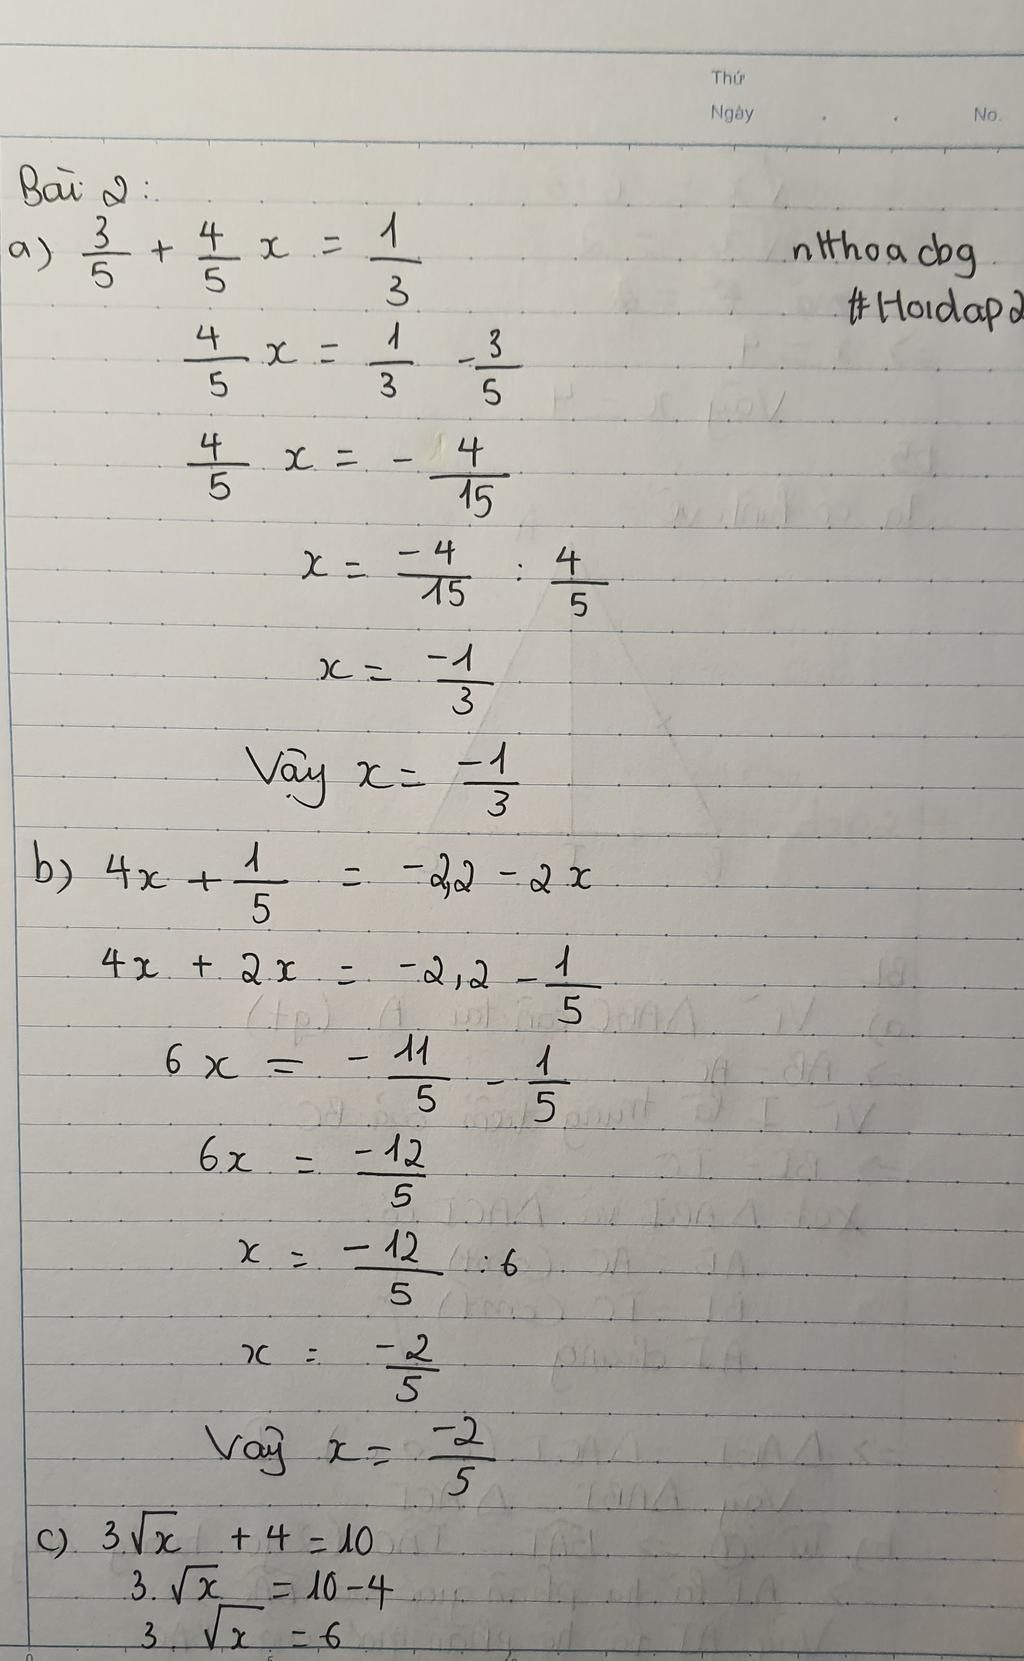 Thứ
Ngày . . No.
Bài 2:
a) 3/5 + 4/5 x = 1/3
nHthoacbg
#Hoidap2
4/5 x = 1/3 - 3/5
4/5 x = - 4/15
x = -4/15 : 4/5
x = -1/3
Vậy x = -1/3
b) 4x + 1/5 = -2,2 - 2x
4x + 2x = -2,2 - 1/5
6x = - 11/5 - 1/5
6x = -12/5
x = -12/5 : 6
x = -2/5
Vậy x = -2/5
c) 3√x + 4 = 10
3.√x = 10-4
3. √x = 6